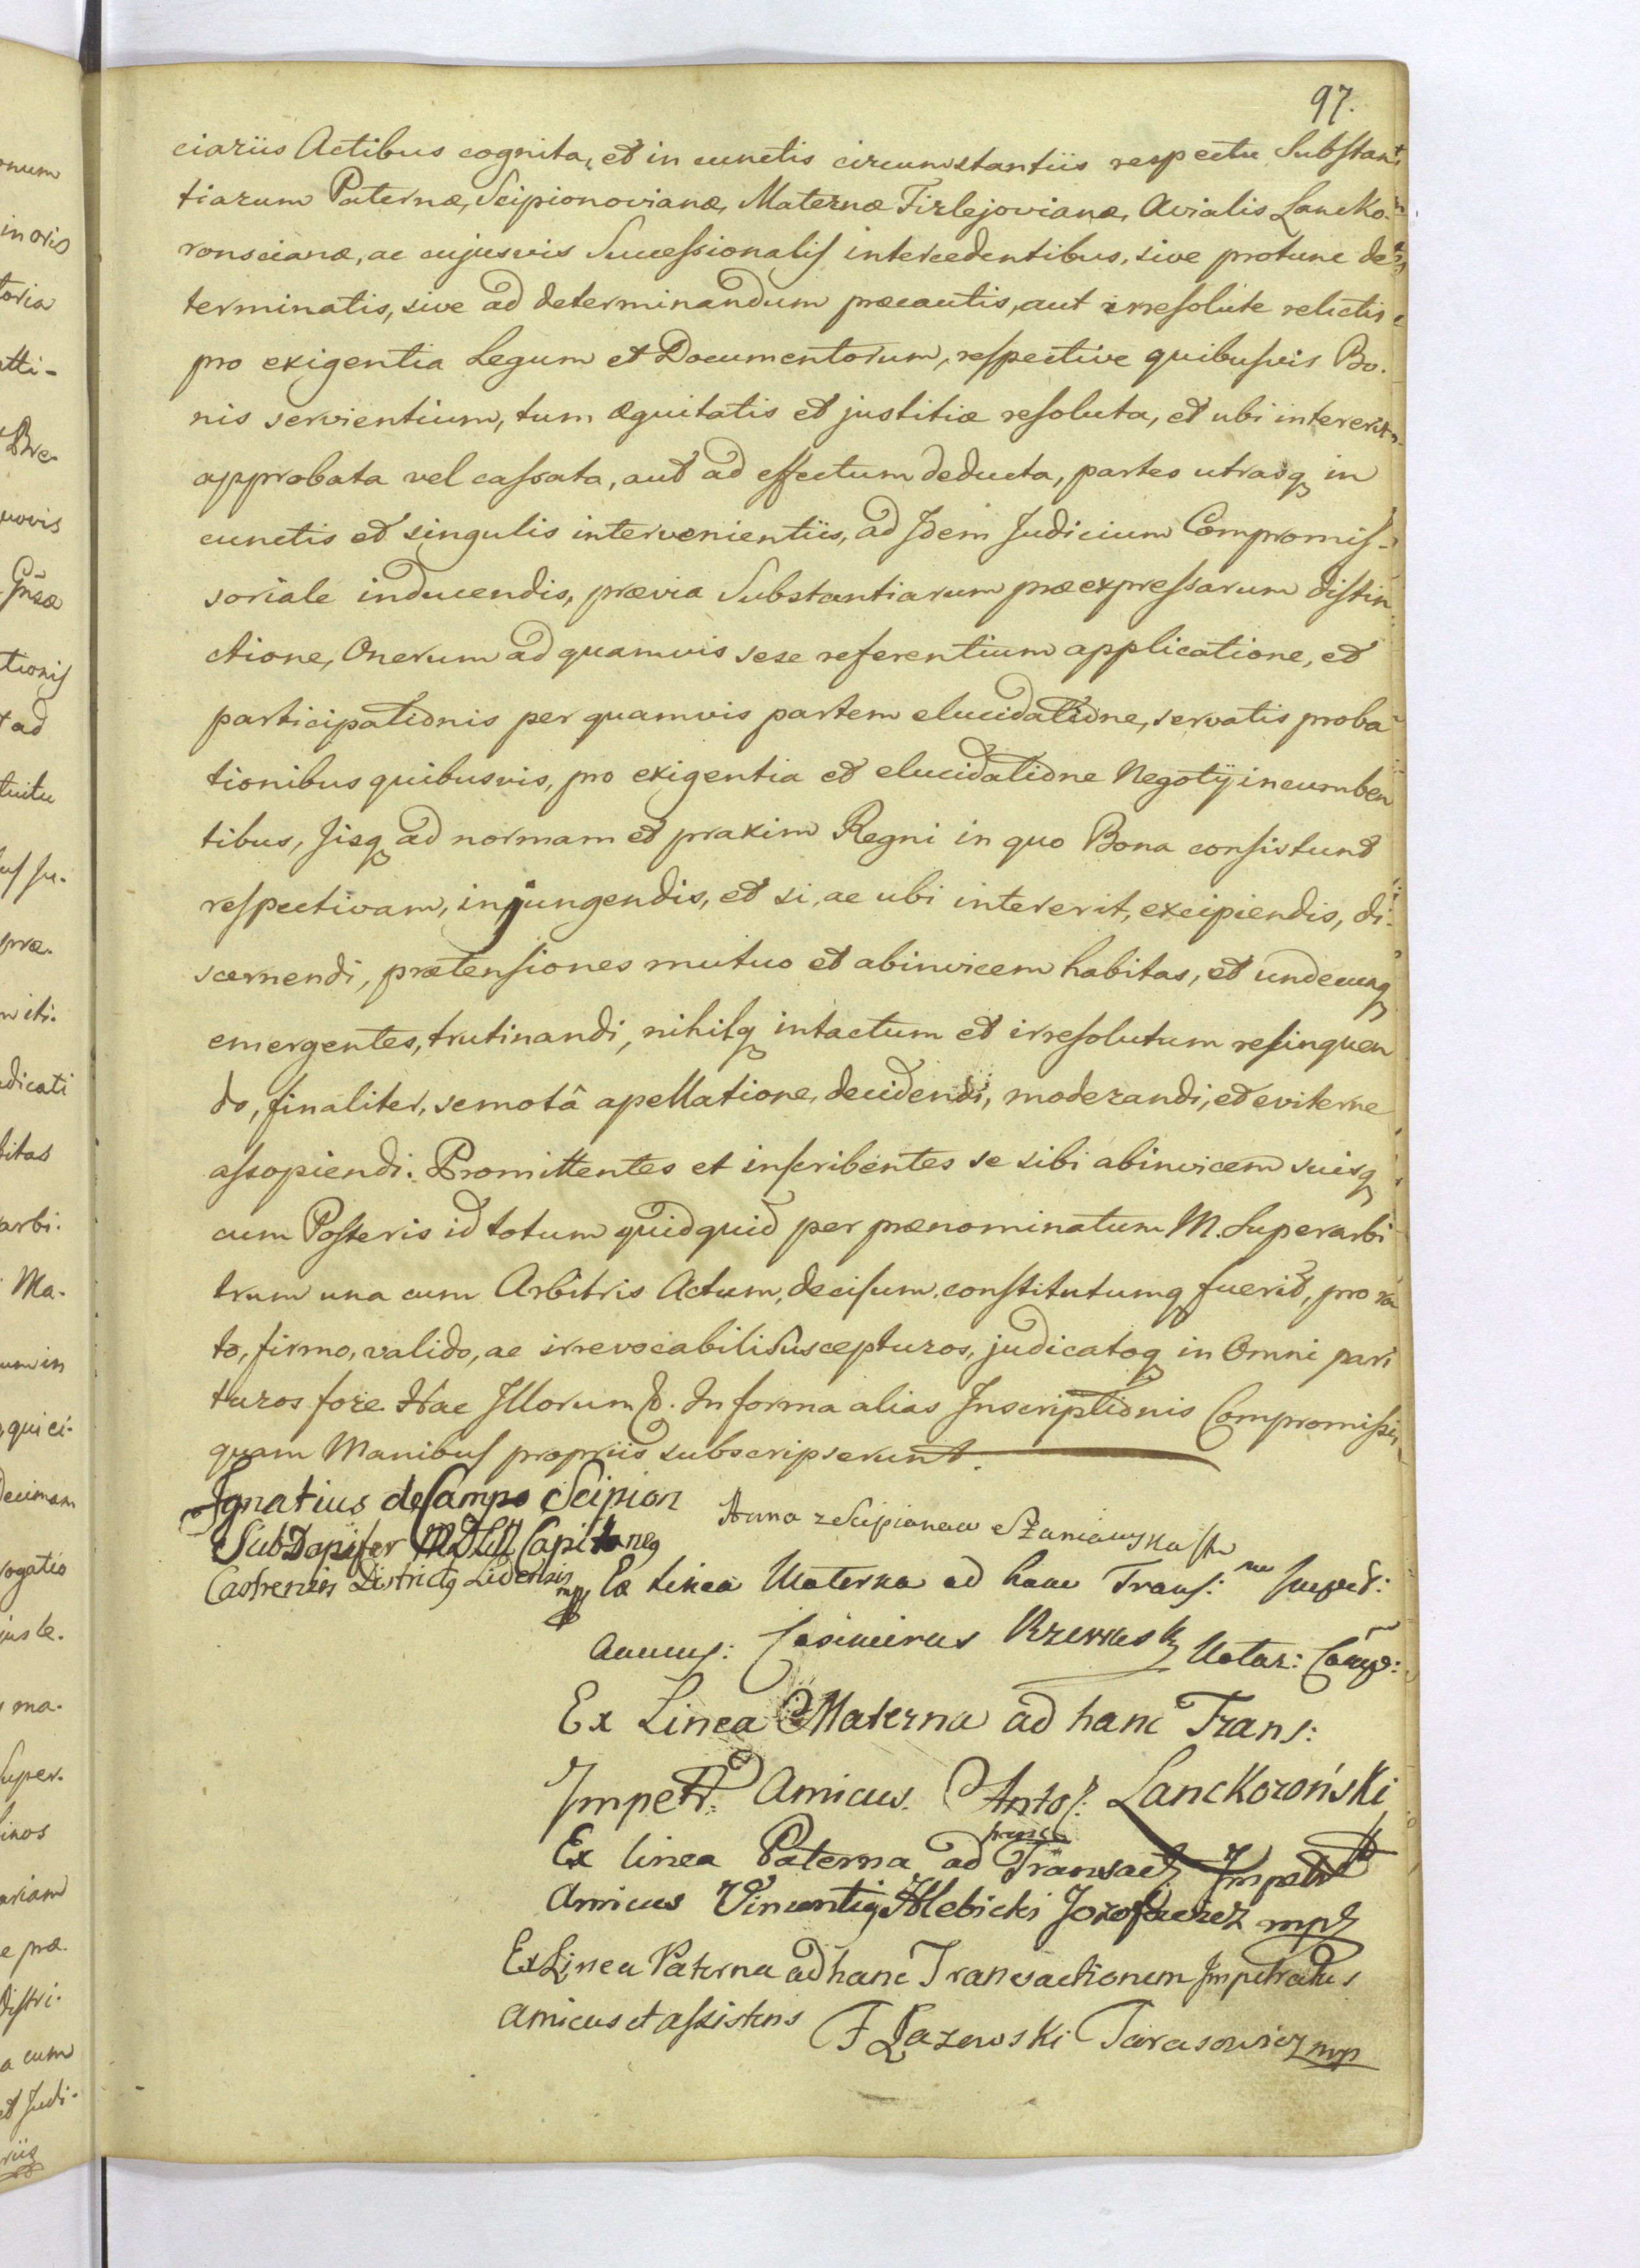 97.
ciariis Actibus cognita, et in cunctis circumstantiis respectu Substan
tiarum Paternæ, Scipionovianæ, Maternæ Firlejovianæ, Avialis Lancko-
ronscianæ, ac cujusvis Successionalis intercedentibus, sive protunc de
terminatis, sive ad determinandum præcautis, aut irresolute relictis
pro exigentia Legum et Documentorum, respective quibusvis Bo-
nis servientium, tum æquitatis et justitiæ resoluta, et ubi intererit
approbata vel cassata, aut ad effectum deducta, partes utrasq in
cunctis et singulis intervenientiis, ad Idem Judicium Compromis-
soriale inducendis, prævia Substantiarum præexpressarum distin
ctione, Onerum ad quamvis sese referentium applicatione, et
participationis per quamvis partem elucidatione, servatis proba
tionibus quibusvis, pro exigentia et elucidatione Negotÿ incumben
tibus, Jisq ad normam et praxim Regni in quo Bona consistunt
respectivam, injungendis, et si, ac ubi intererit, excipiendis, di-
scernendi, prætensiones mutuo et abinvicem habitas, et undecunq
emergentes, trutinandi, nihilq intactum et irresolutum relinquen
do, finaliter, semotâ apellatione, decidendi, moderandi, et eviterne
assopiendi. Promittentes et inscribentes se sibi abinvicem suisq
cum Posteris id totum quidquid per prænominatum M. Superarbi
trum una cum Arbitris Actum, decisum, constitutumq fuerit, pro ra
to, firmo, valido, ac irrevocabili suscepturos, judicatoq in Omni pari
turos fore. Hac Illorum &. In forma alias Inscriptionis Compromissi,
quam Manibus propriis subscripserunt.
Ignatius de Campo Scipion
SubDapifer MDLitt Capitaneg
Castrensis Districtg Lidensis mp
Anna z Scipionow Szaniawska
Ex Linea Materna ad hanc Trans: Impetr:
Amicus: Casimirus Rzewuski Notar: Camp:
Ex Linea Materna ad hanc Trans:
Impetr: Amicus. Anto: Lanckoroński
Ex linea Paterna ad hanc Transact Impetrt
Amicus Vincentig Hlebicki Jozofowicz mp
Ex Linea Paterna ad hanc Transactionem Impetratus
Amicus et assistens F Łazowski Tarasowicz mp